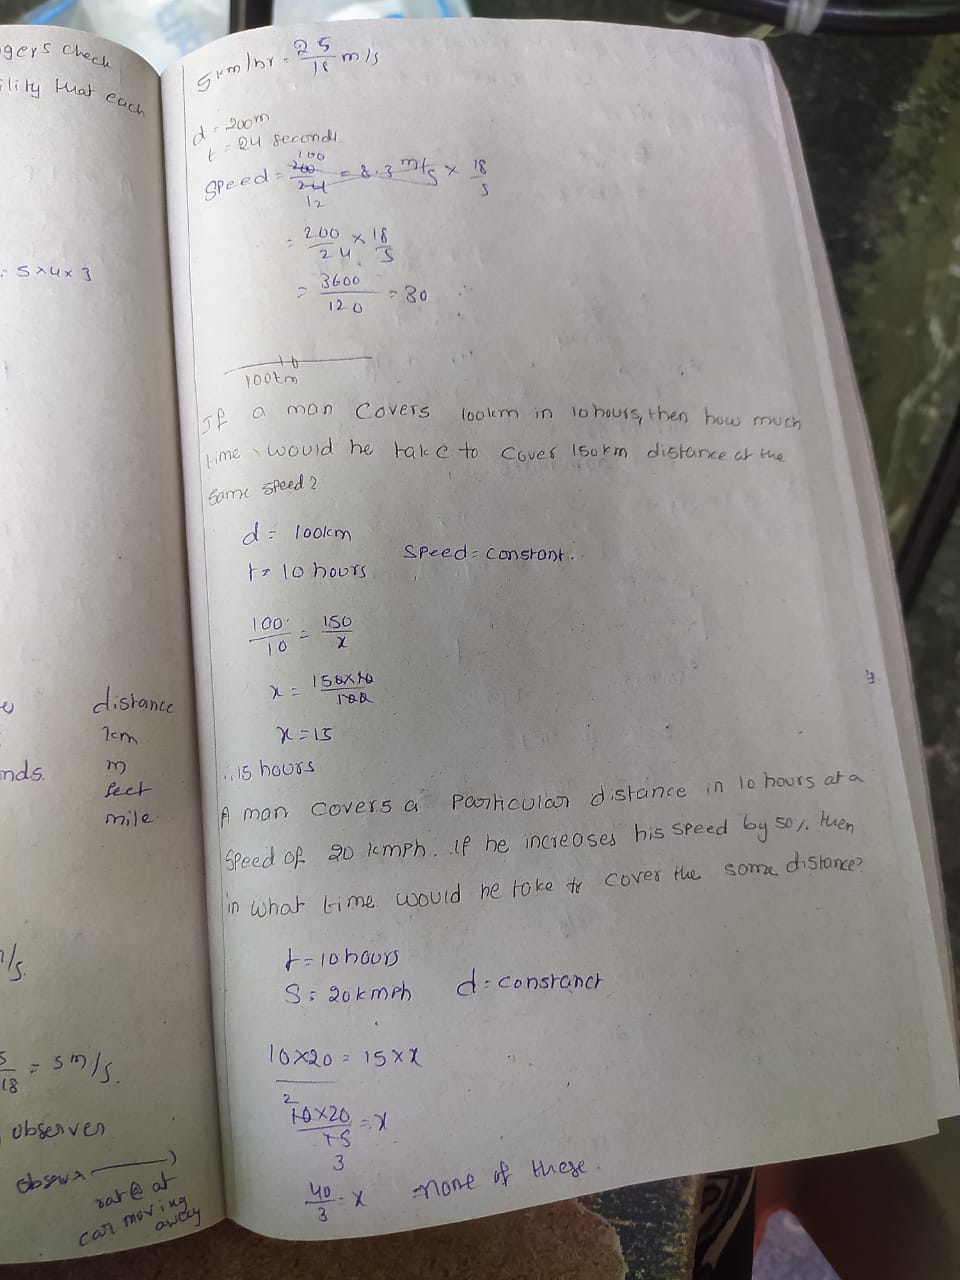 gers check
ility that each
= 5x4x3
distance
km
nds. m
feet
mile
m/s.
5/18 = 5 m/s.
observer
observer
car moving
away
5km/hr = 25/18 m/s
d = 200m
t = 24 seconds
100
Speed = 200/24 = 8.3 m/s x 18/5
12
= 200/24 x 18/5
= 3600/120 = 30
10
100km
If a man covers 100km in 10 hours, then how much
time would he take to cover 150km distance at the
same speed?
d = 100km
Speed = constant.
t = 10 hours
100/10 = 150/x
x = 150x10/100
x = 15
∴ 15 hours
A man covers a particular distance in 10 hours at a
speed of 20 kmph. if he increases his speed by 50% then
in what time would he take to cover the same distance?
t = 10 hours
S = 20kmph d = constanct
10x20 = 15 x x
2
10x20/15 = x
3
40/3 = x =none of these.